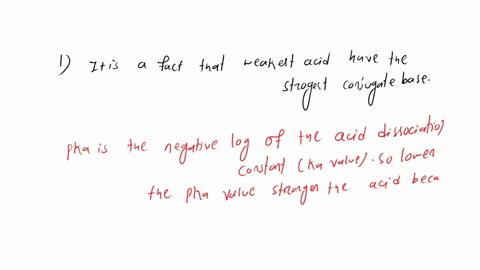 1) It is a fact that weakest acid have the
strogest conjugate base.
pka is the negative log of the acid dissociation
constant (ka value). so lower
the pka value stronger the acid beca